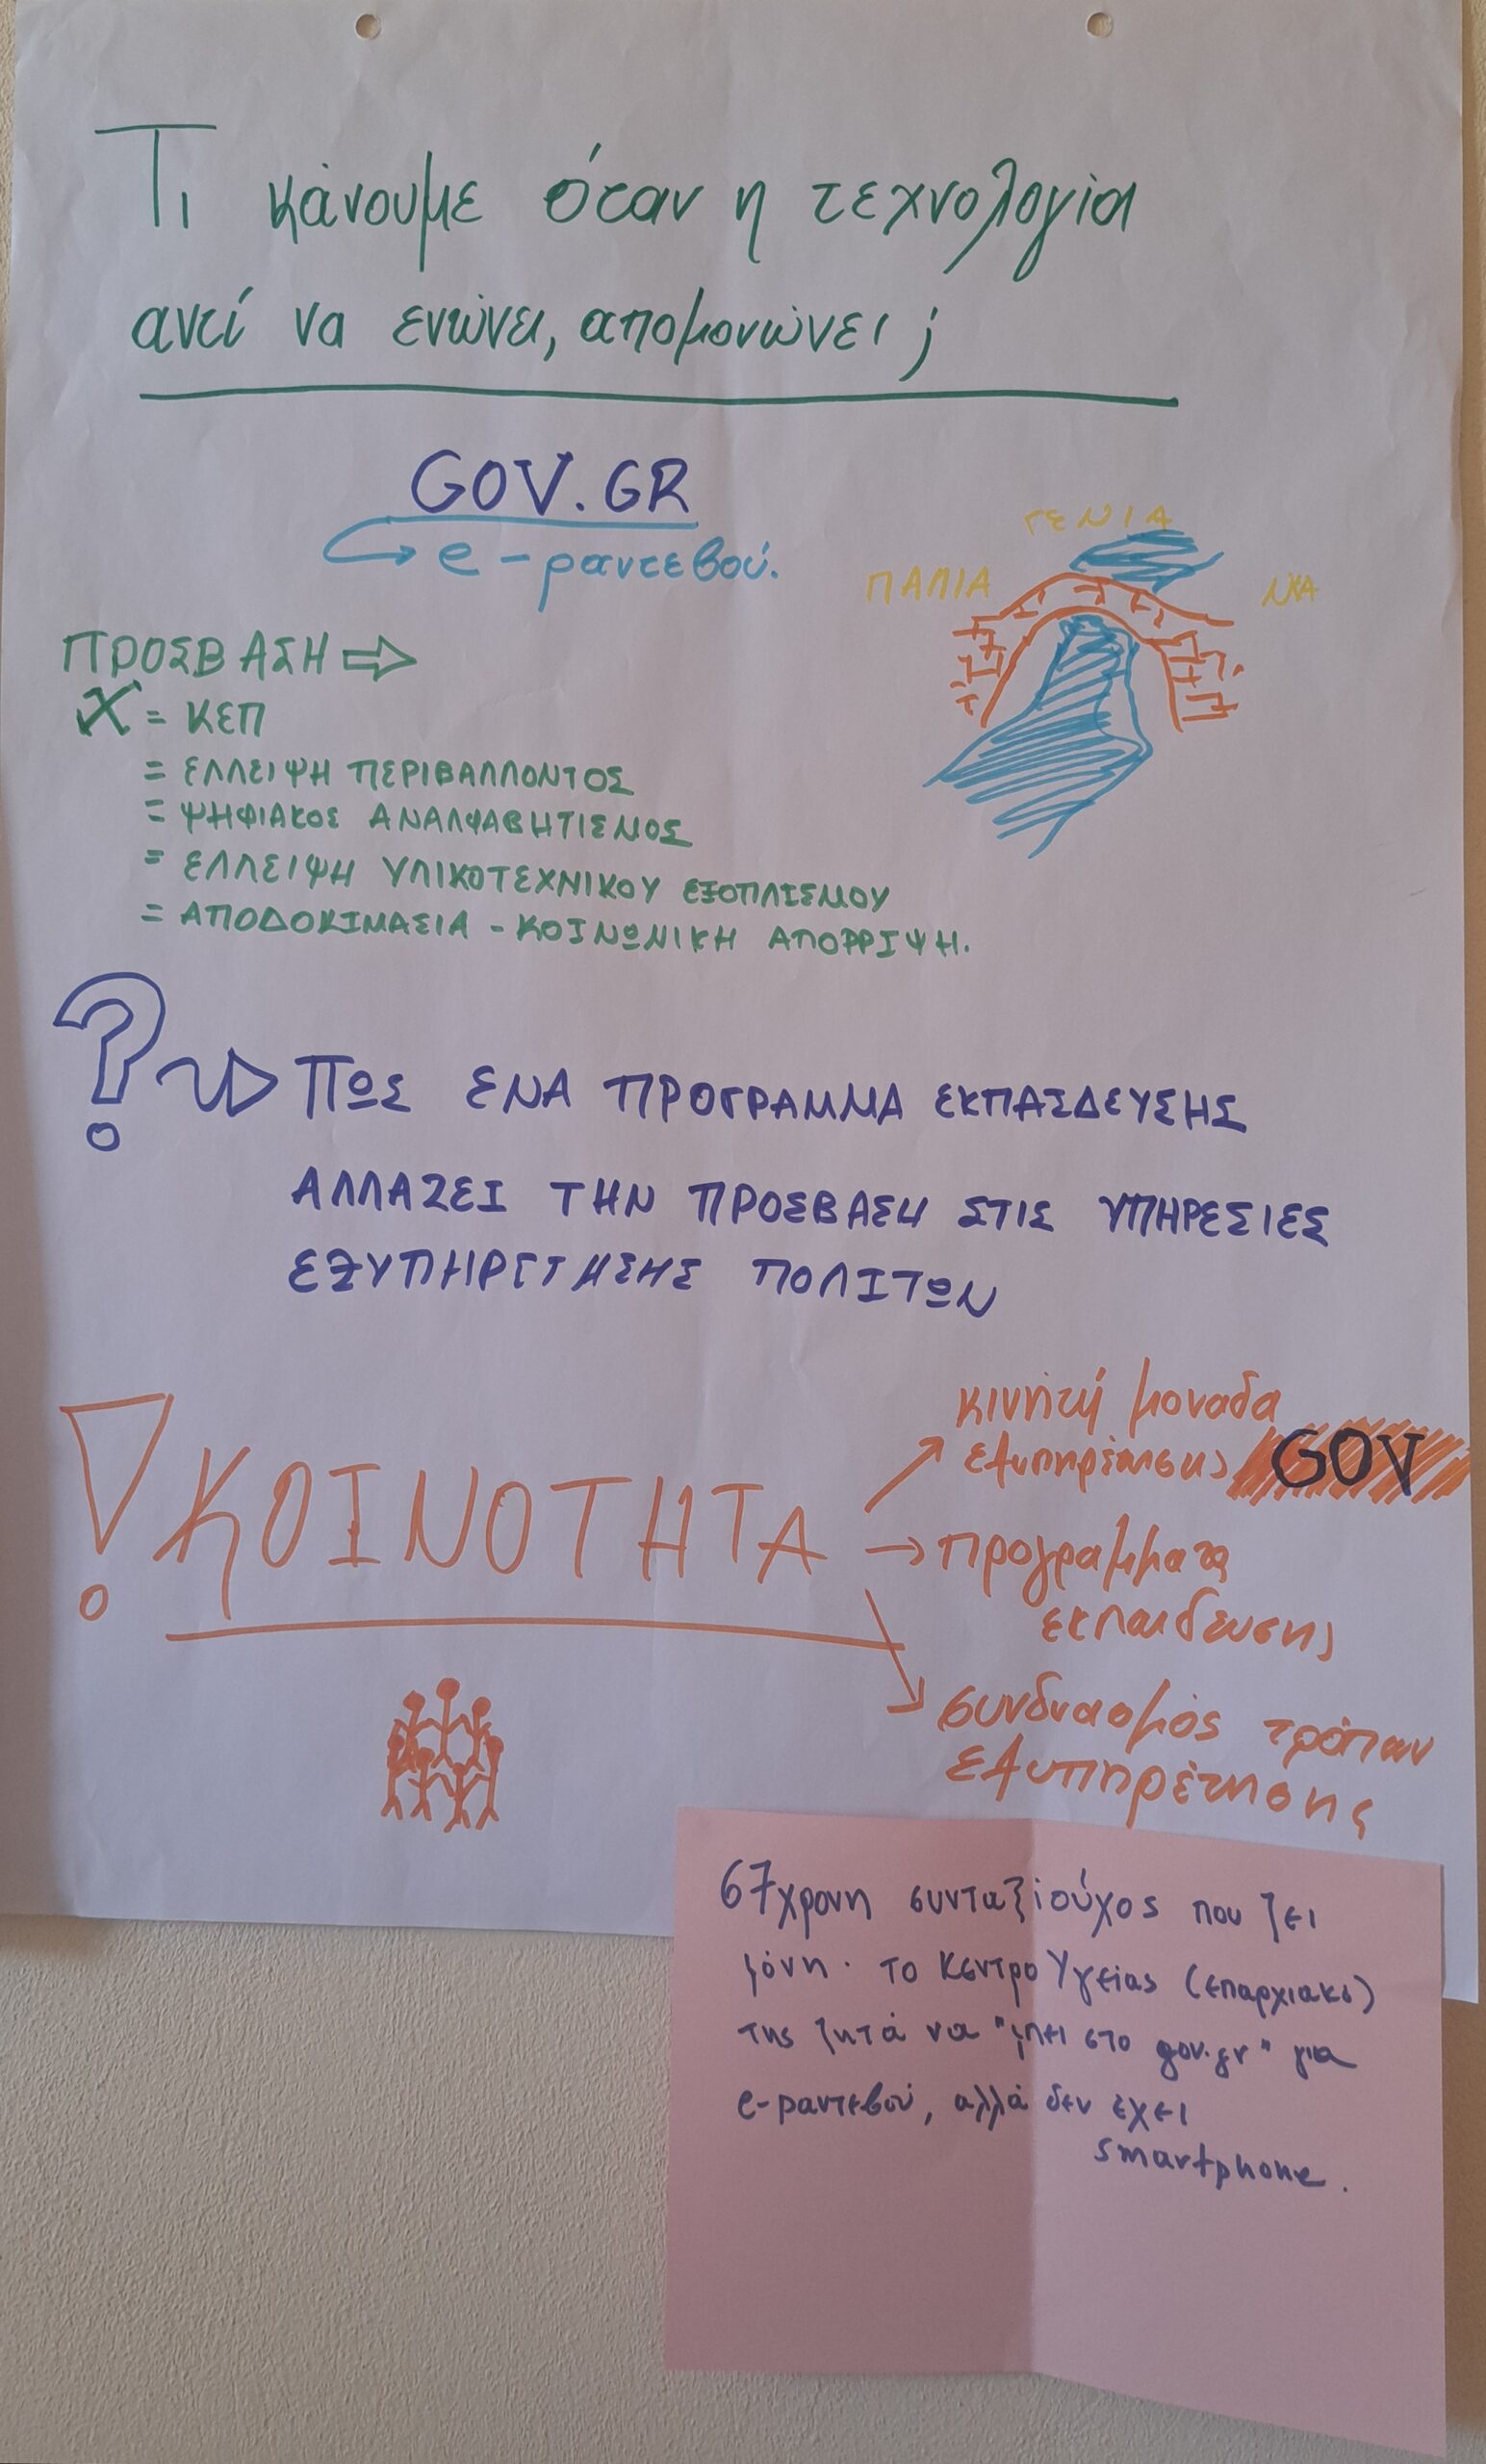 Τι κάνουμε όταν η τεχνολογία
αντί να ενώνει, απομονώνει;
GOV.GR
e-ραντεβού.
ΓΕΝΙΑ
ΠΑΛΙΑ
ΝΕΑ
ΠΡΟΣΒΑΣΗ ⇨
X = ΚΕΠ
= ΕΛΛΕΙΨΗ ΠΕΡΙΒΑΛΛΟΝΤΟΣ
= ΨΗΦΙΑΚΟΣ ΑΝΑΛΦΑΒΗΤΙΣΜΟΣ
= ΕΛΛΕΙΨΗ ΥΛΙΚΟΤΕΧΝΙΚΟΥ ΕΞΟΠΛΙΣΜΟΥ
= ΑΠΟΔΟΚΙΜΑΣΙΑ - ΚΟΙΝΩΝΙΚΗ ΑΠΟΡΡΙΨΗ.
? ΠΩΣ ΕΝΑ ΠΡΟΓΡΑΜΜΑ ΕΚΠΑΙΔΕΥΣΗΣ
ΑΛΛΑΖΕΙ ΤΗΝ ΠΡΟΣΒΑΣΗ ΣΤΙΣ ΥΠΗΡΕΣΙΕΣ
ΕΞΥΠΗΡΕΤΗΣΗΣ ΠΟΛΙΤΩΝ
! ΚΟΙΝΟΤΗΤΑ
κινητή μοναδα
εξυπηρέτησης GOV
→ προγραμματα
εκπαιδευσης
συνδυασμός τρόπων
εξυπηρέτησης
67χρονη συνταξιούχος που ζει
μόνη. Το Κεντρο Υγείας (επαρχιακό)
της ζητά να "μπει στο gov.gr" για
e-ραντεβού, αλλά δεν έχει
smartphone.